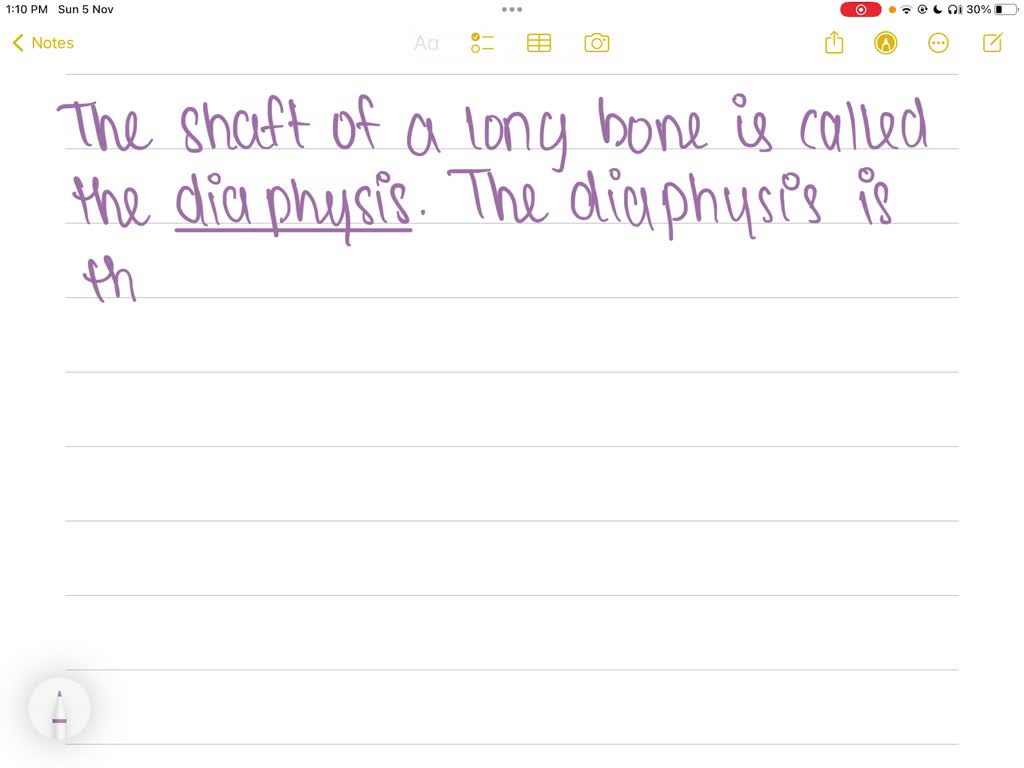 1:10 PM Sun 5 Nov 30%
Notes Aa
The shaft of a long bone is called
the diaphysis. The diaphysis is
th